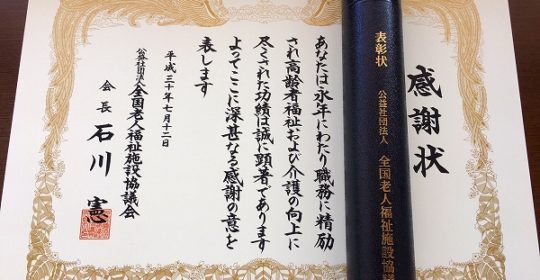 感謝状
表彰状
公益社団法人 全国老人福祉施設協
あなたは永年にわたり職務に精励
され高齢者福祉および介護の向上に
尽くされた功績は誠に顕著であります
よってここに深甚なる感謝の意を
表します
平成三十年七月十二日
公益社団法人全国老人福祉施設協議会
会長 石川 憲